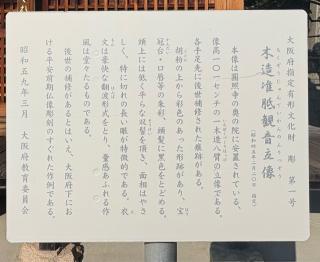 大阪府指定有形文化財 彫 第一号
もくぞうじゅんていかんのんりゅうぞう
木造准胝観音立像
(昭和四五年二月二〇日 指定)
本像は圓照寺の奥の院に安置されている、
像高一〇一センチの一木造八臂の立像である。
各手足先に後世補修された痕跡がある。
胡粉の上から彩色のあった形跡があり、宝
冠台・口唇等の朱彩、頭髪に黒色をとどめる。
頭上には低く平らな双髻を頂き、面相はやさ
しく、特に切れの長い眼が特徴的である。衣
文は豪快な翻波形式をとり、量感あふれる作
風は堂々たるものである。
後世の補修があるとはいえ、大阪府下にお
ける平安前期仏像彫刻のすぐれた作例である。
昭和五九年三月 大阪府教育委員会